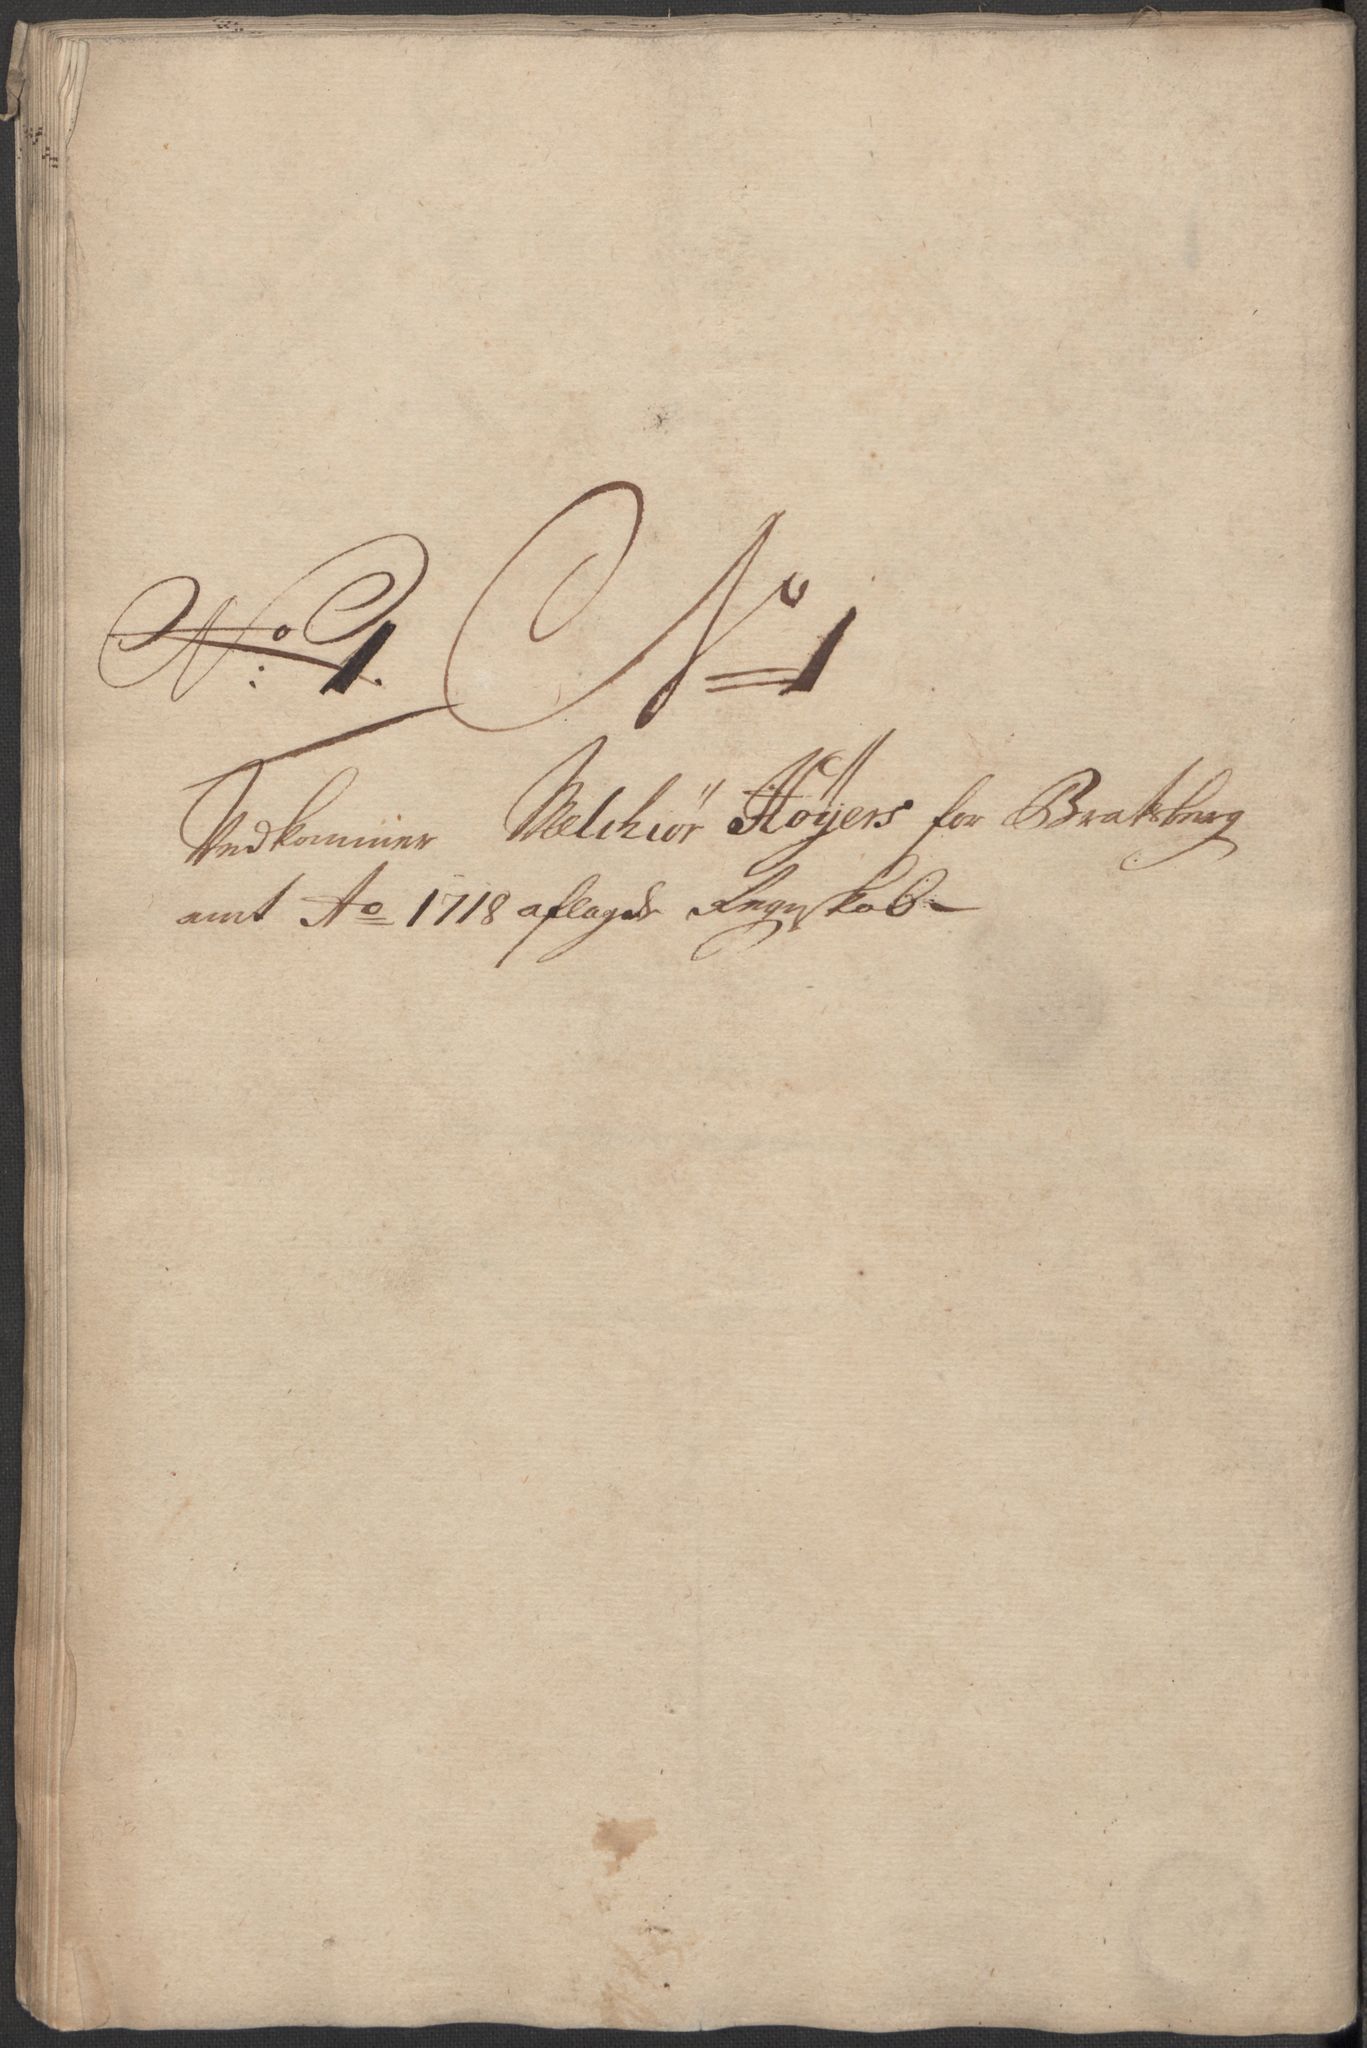 No: 1. No 1
Vedkommer Melchiör Höyers for Bratsberg
amt Ao 1718 aflagde Regnskab